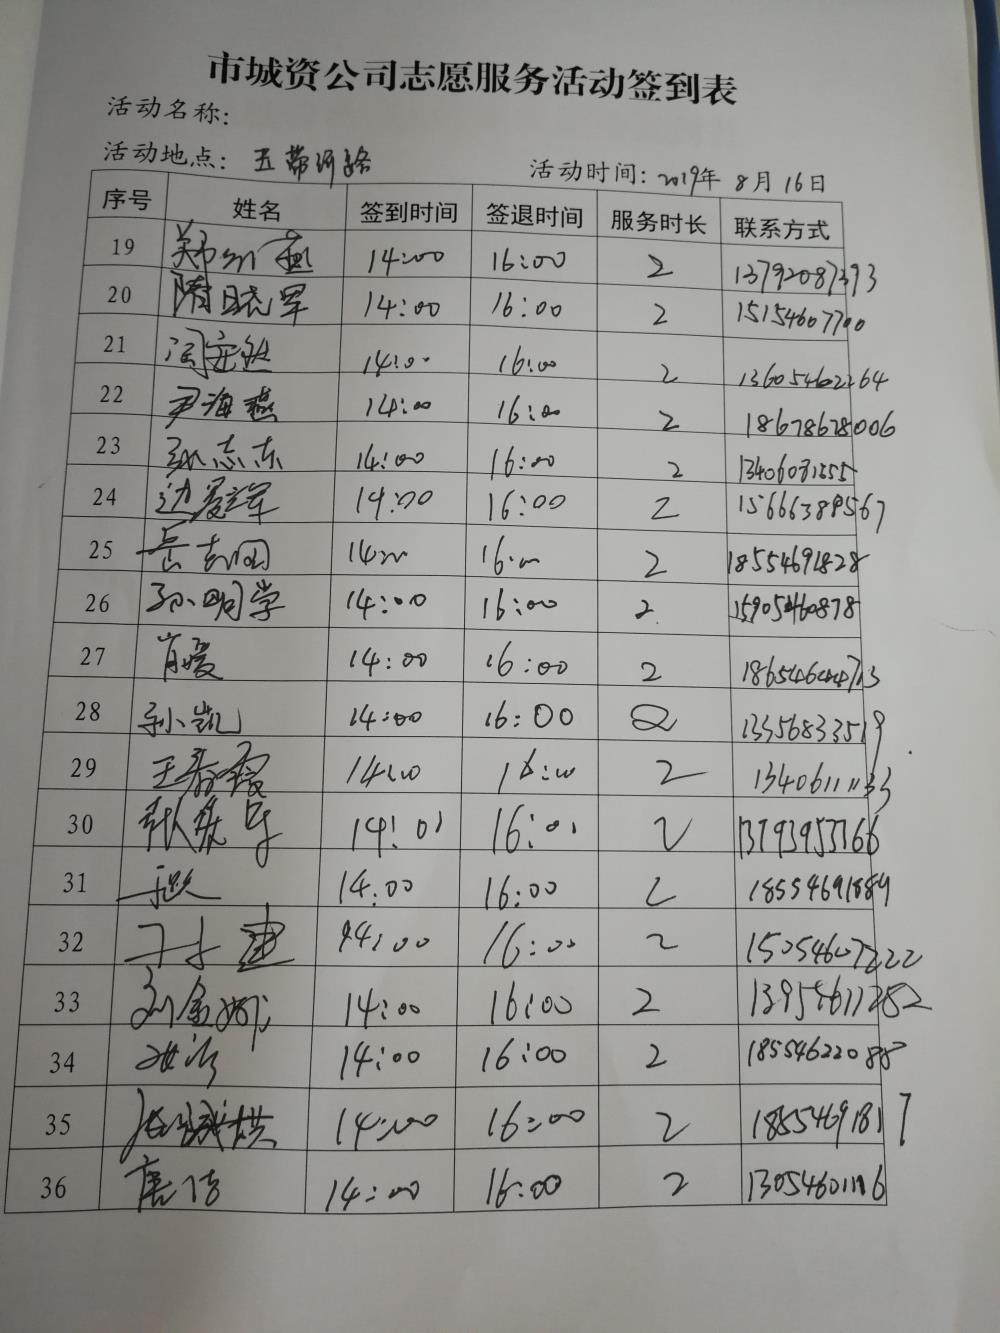 市城资公司志愿服务活动签到表
活动名称:
活动地点: 五带河路 活动时间: 2019年 8月16日
序号 姓名 签到时间 签退时间 服务时长 联系方式
19 14:00 16:00 2 13792087393
20 隋晓军 14:00 16:00 2 15154607700
21 14:00 16:00 2 13605462264
22 尹海燕 14:00 16:00 2 18678678006
23 孙志东 14:00 16:00 2 13406081555
24 边爱军 14:00 16:00 2 15666388567
25 岳志刚 14:00 16:00 2 18554691828
26 孙明学 14:00 16:00 2 15905460878
27 肖媛 14:00 16:00 2
28 孙凯 14:00 16:00 2 13356833519
29 王春霞 14:00 16:00 2 13406111133
30 14:01 16:01 2 13793953766
31 14:00 16:00 2 18554691889
32 14:00 16:00 2 15054607222
33 刘金娜 14:00 16:00 2 13954611282
34 14:00 16:00 2 18554622088
35 14:00 16:00 2 18554691817
36 唐洁 14:00 16:00 2